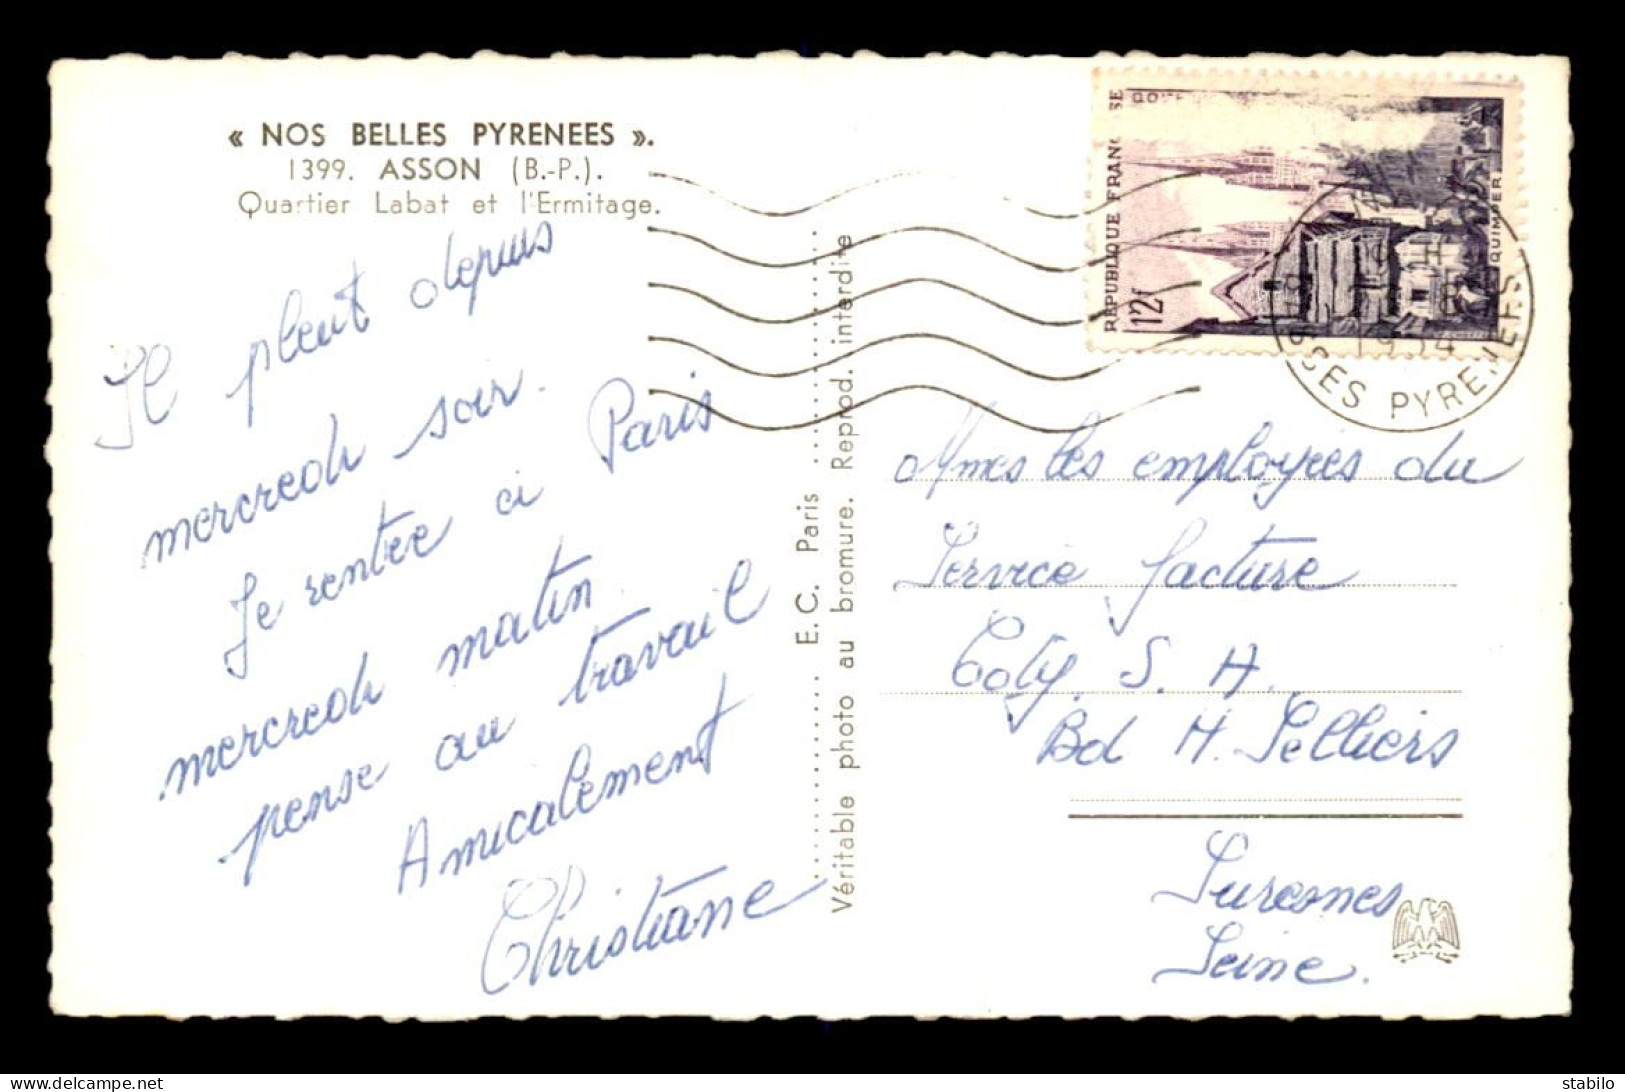 « NOS BELLES PYRENEES ».
1399. ASSON (B.-P.).
Quartier Labat et l'Ermitage.
Il pleut depuis
mercredi soir.
Je rentre à Paris
mercredi matin.
pense au travail
Amicalement
Christiane
E. C. Paris
Véritable photo au bromure. Reprod. interdite
REPUBLIQUE FRANC SE
12f
QUIMPER
1954
SSES PYRENEES
Mmes les employées du
Service facture
Coty. S. A.
Bd H. Selliers
Suresnes
Seine.
stabilo